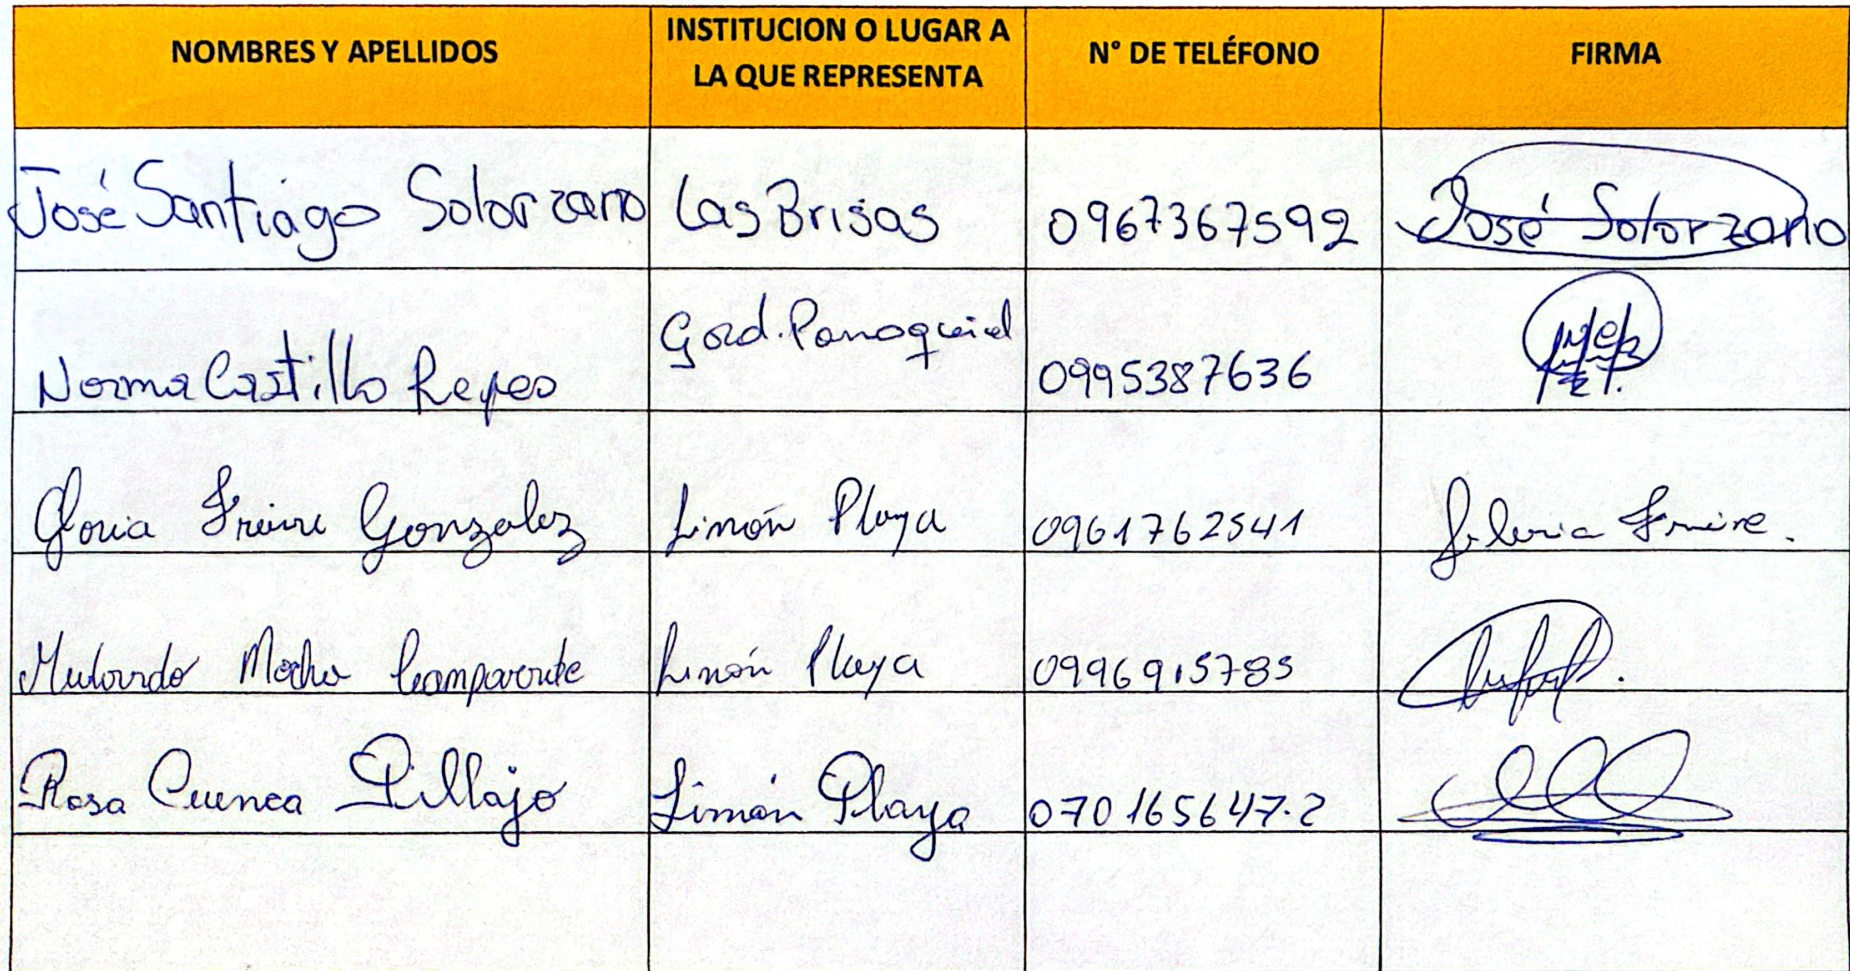 NOMBRES Y APELLIDOS
INSTITUCION O LUGAR A
LA QUE REPRESENTA
N° DE TELÉFONO
FIRMA
José Santiago Solorzano Las Brisas 0967367592 José Solorzano
Norma Castillo Reyes 0995387636
Gloria Freire Gonzalez Limón Playa 0961762541 Freire.
Limón Playa
Rosa Cuenca Pillajo Limón Playa 070165647-2